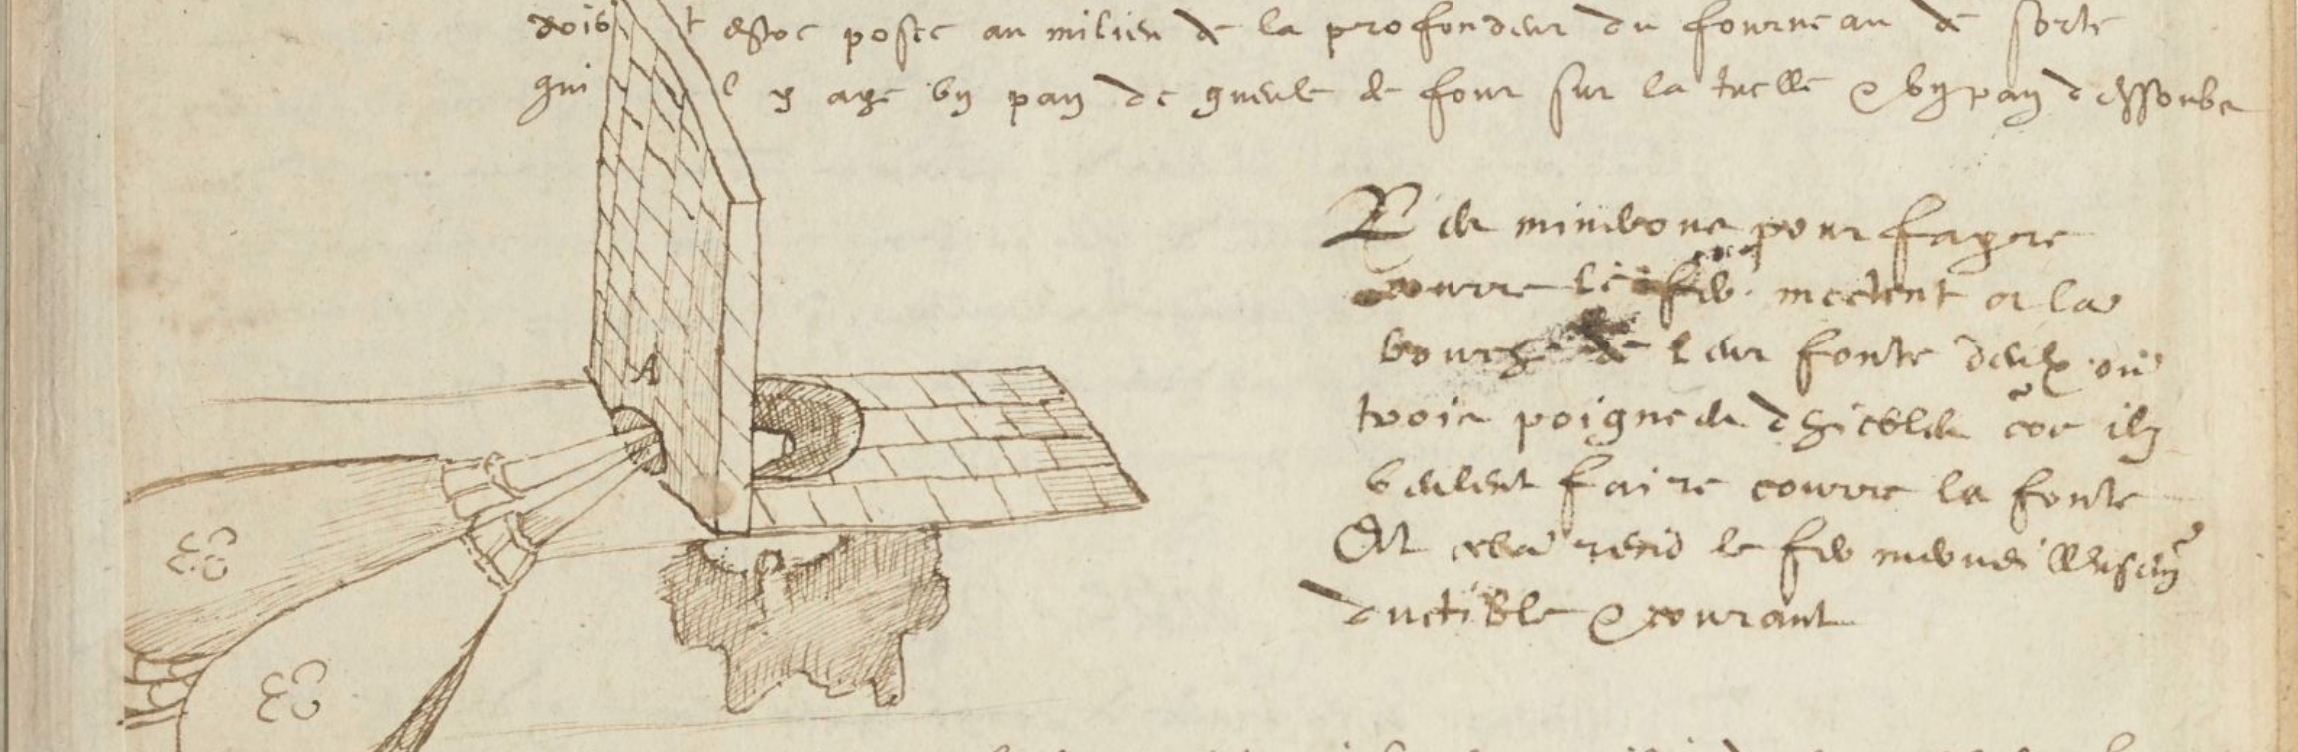 doibt estre posee au milieu de la profondeur du fourneau de sorte
quil y aye un pan de gueule de four sur la tuelle & un pan dessoubs
A
Les minerons pour fayre
courre le feu mectent a la
bouche de leur fonte deulx ou
trois poignees dhiebles co(mm)e ilz
veulent faire courre la fonte
Et cela rend le feu
ductible & courant